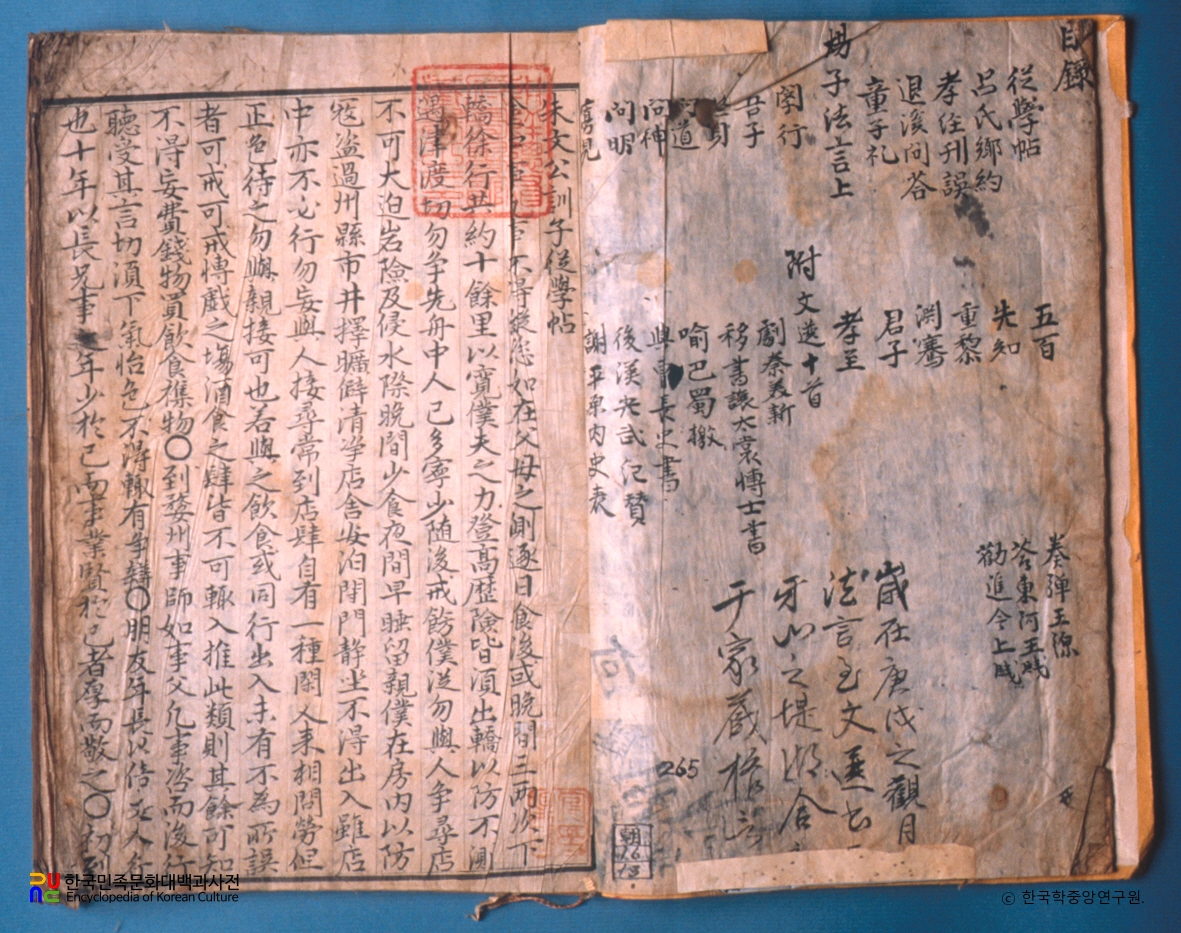 目錄
從學帖
呂氏鄉約
孝經刊誤
退溪問答
童子礼
揚子法言上
學行
吾子
修身
問道
問神
問明
寡見
五百
先知
重黎
淵騫
君子
孝至
附文選十首
劇秦美新
移書讓太常博士書
喻巴蜀檄
與曹長史書
後漢光武紀贊
謝平原內史表
奏彈王源
答東阿王牋
勸進今上牋
歲在庚戌之觀月
法言至文選
牙山之堤湖
于家藏
265
朝
16
13
朱文公訓子從學帖
不得縱恣如在父母之側逐日食後或晚間三兩次下
轎徐行共約十餘里以寬僕夫之力登高歷險皆須出轎以防不測
遇津渡切勿爭先舟中人已多寧少随後戒飭僕從勿與人爭尋店
不可大迫岩險及侵水際晚間少食夜間早睡留親僕在房內以防
寇盜過州縣市井擇曠僻清净店舍安泊閉門静坐不得出入雖店
中亦不必行勿妄與人接尋常到店肆自有一種閑人来相問勞但
正色待之勿與親接可也若與之飲食或同行出入未有不為所誤
者可戒可戒博戲之場酒食之肆皆不可輒入推此類則其餘可知
不得妄費錢物買飲食雜物〇到婺州事師如事父凡事咨而後行
聽受其言切須下氣怡色不得輒有争辯〇朋友年長以倍丈人行
也十年以長兄事之年少於己而事業賢於己者厚而敬之〇初到
한국민족문화대백과사전
Encyclopedia of Korean Culture
ⓒ 한국학중앙연구원.